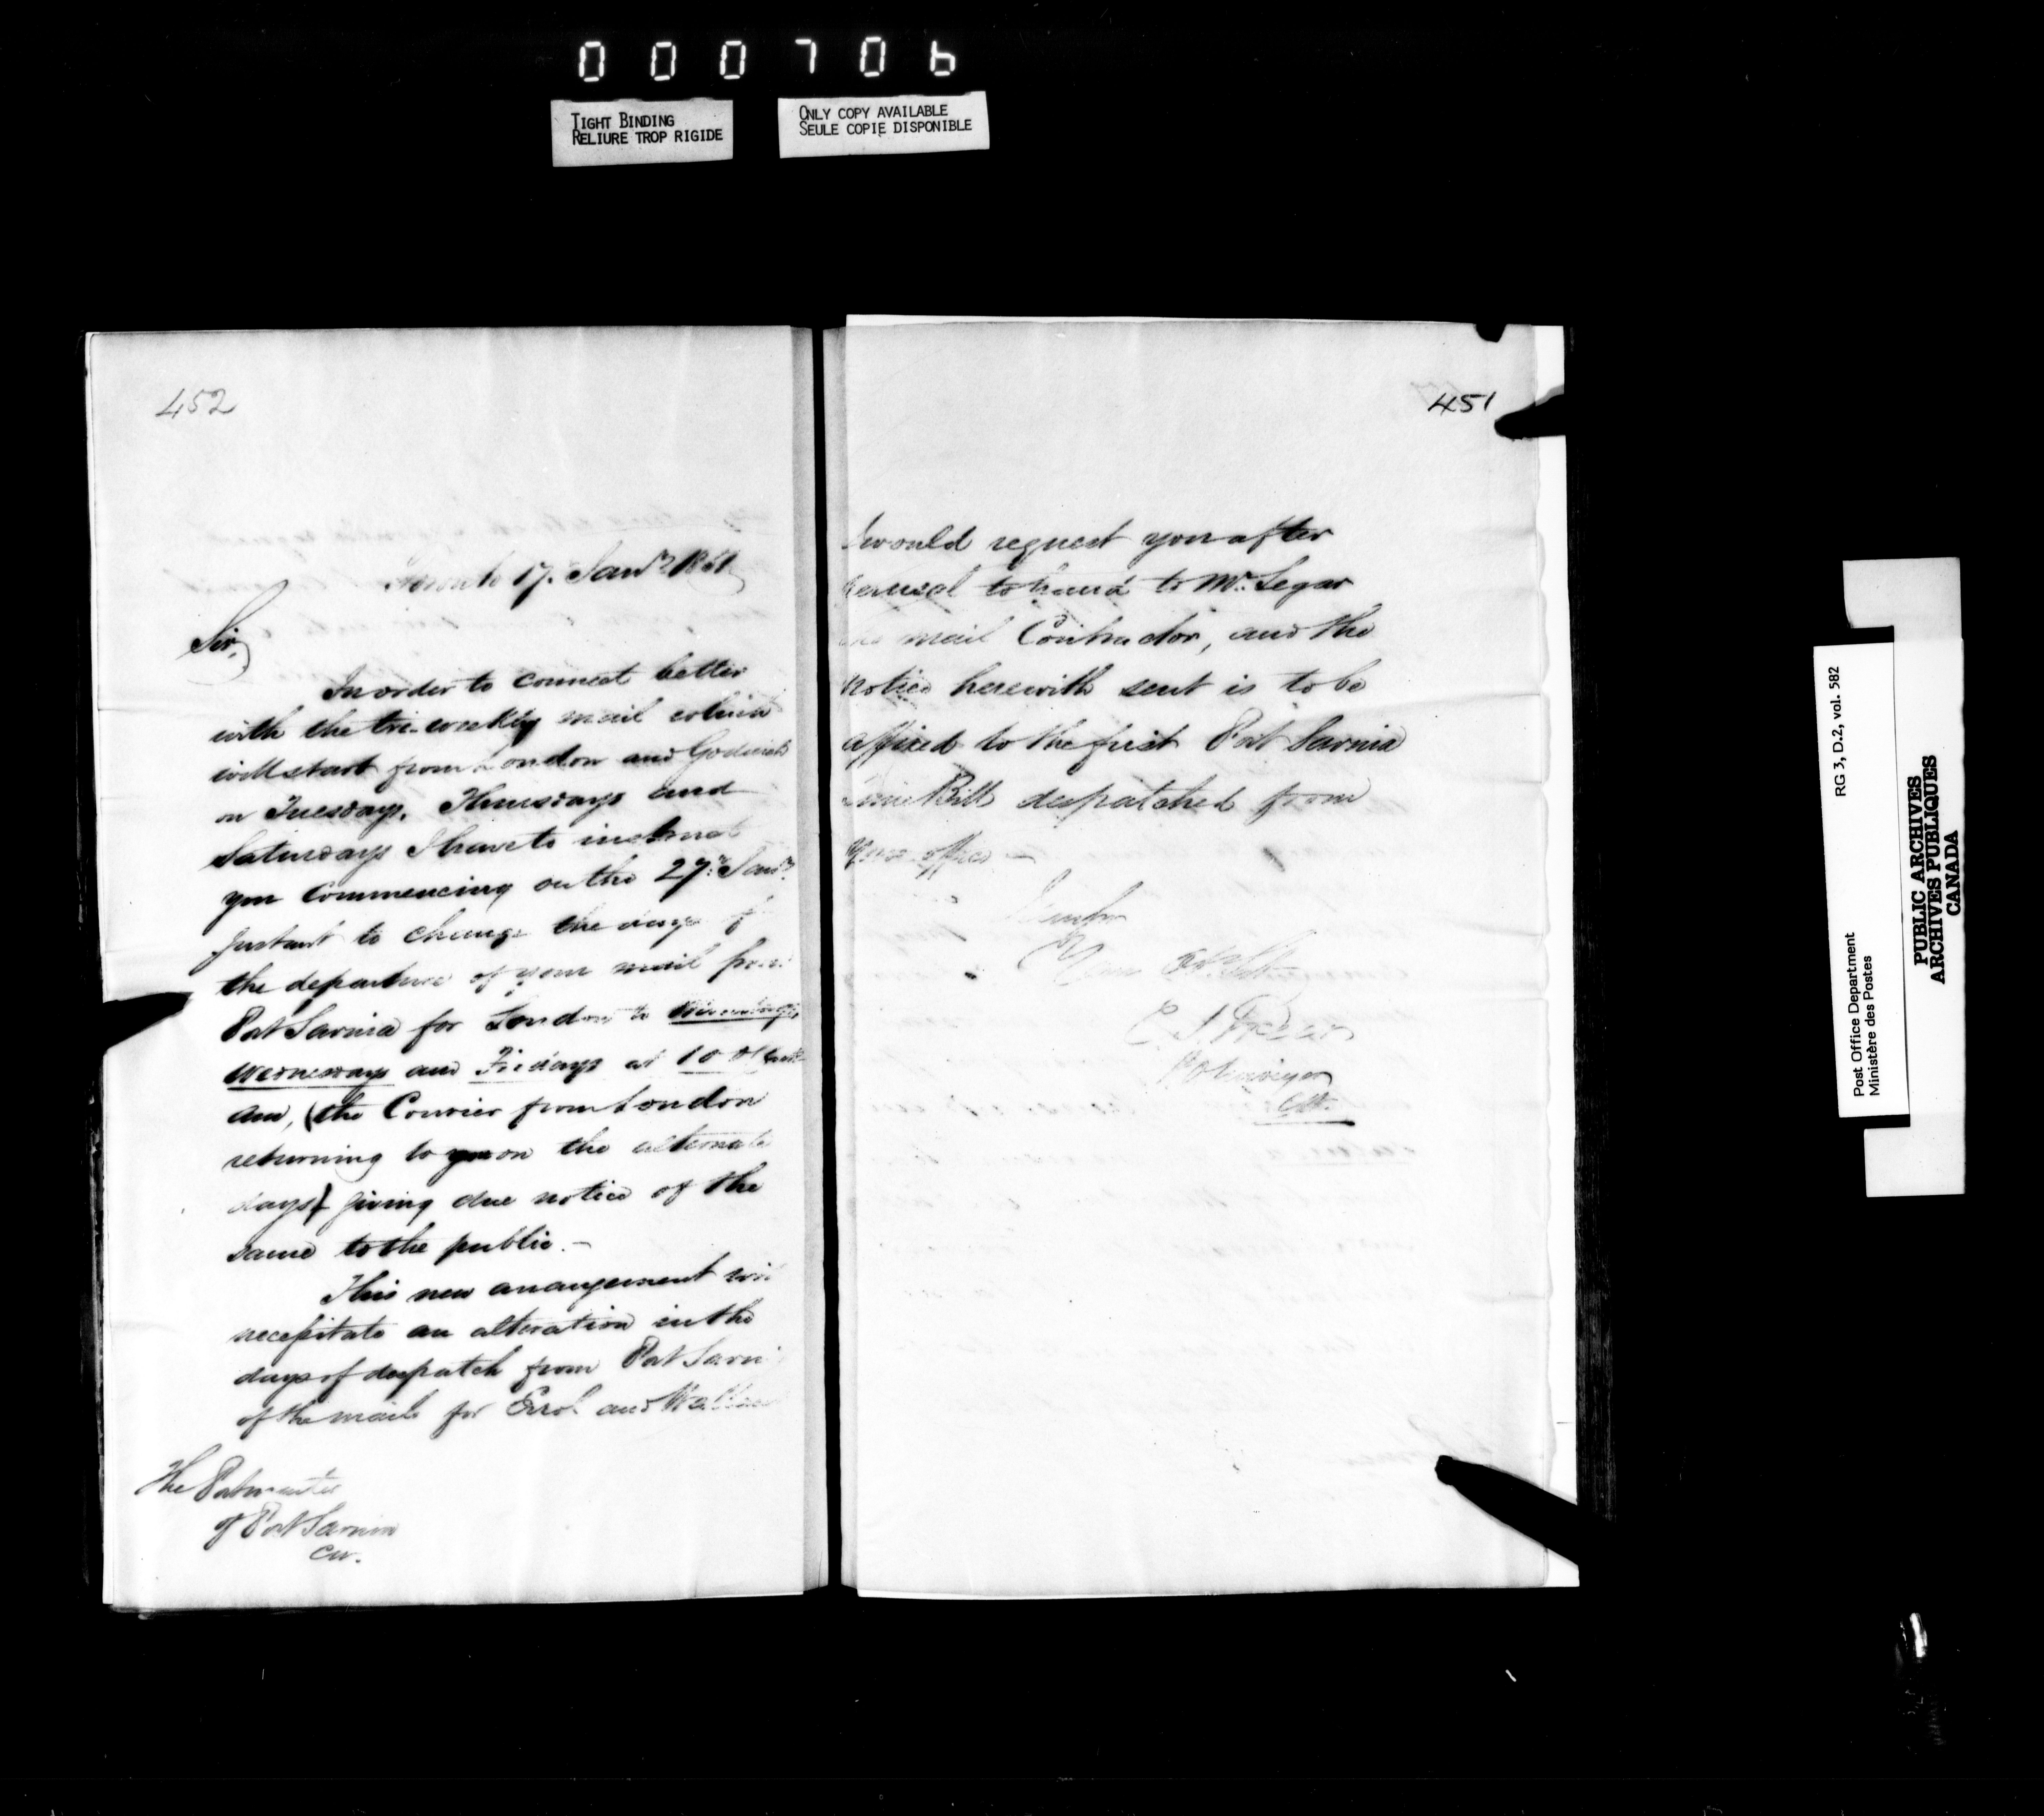 000706
TIGHT BINDING
RELIURE TROP RIGIDE
ONLY COPY AVAILABLE
SEULE COPIE DISPONIBLE
452
Toronto 17. Jany 1851
Sir,
In order to connect better
with the tri-weekly mail which
will start from London and Goderich
on Tuesdays, Thursdays and
Saturdays I have to instruct
you Commencing on the 27th Jany
Instant to change the days of
the departure of your mail from
Port Sarnia for London to Mondays,
Wednesdays and Fridays at 10 O'Clock
am, (the Courier from London
returning to you on the alternate
days) giving due notice of the
same to the public. —
This new arrangement will
necessitate an alteration in the
days of despatch from Port Sarnia
of the mails for Errol and
The Postmaster
of Port Sarnia
CW.
451
I would request you after
perusal to hand to Mr. Segar
the mail Contractor, and the
notice herewith sent is to be
affixed to the first Port Sarnia
Time Bill despatched from
your office —
I am Sir
Your Obt. Servt
E. S. Freer
P O Surveyor
CW.
Post Office Department
Ministère des Postes
RG 3, D.2, vol. 582
PUBLIC ARCHIVES
ARCHIVES PUBLIQUES
CANADA